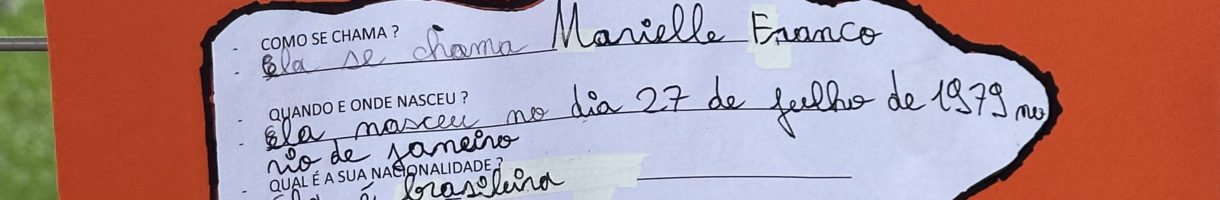 COMO SE CHAMA ?
Ela se chama Marielle Franco
QUANDO E ONDE NASCEU ?
Ela nasceu no dia 27 de julho de 1979 no
rio de janeiro
QUAL É A SUA NACIONALIDADE ?
Ela é brasileira